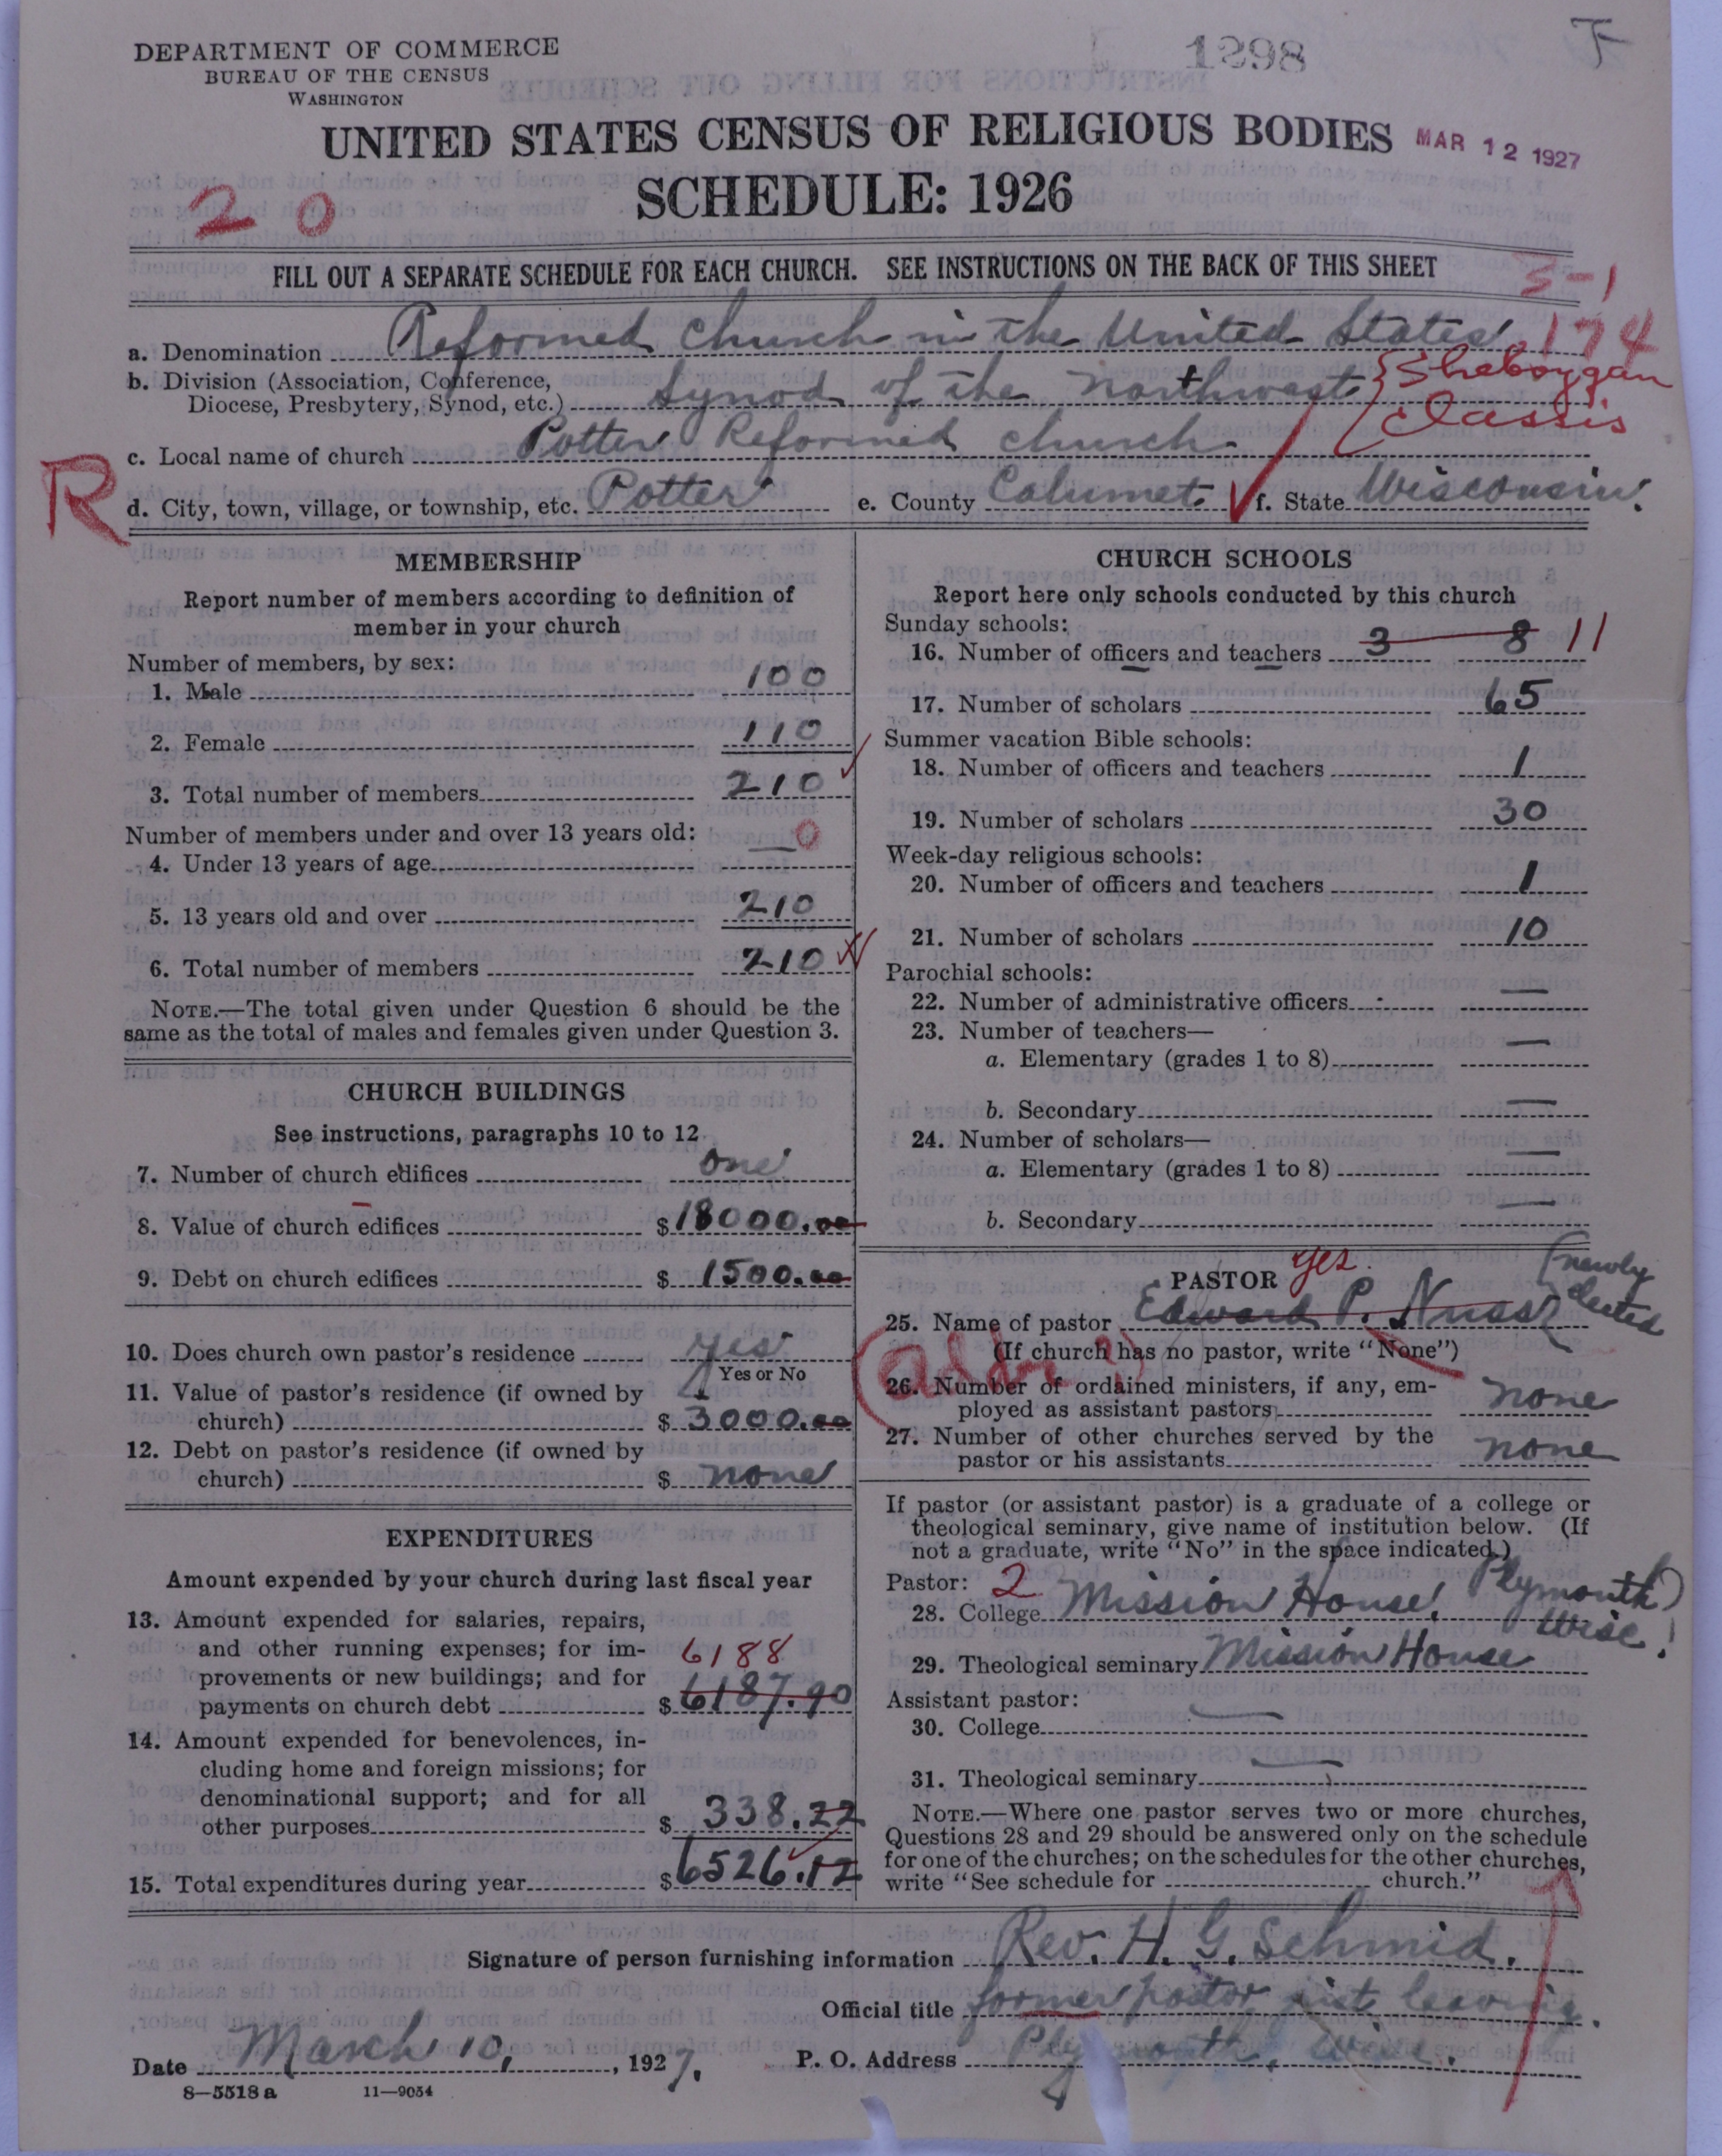 DEPARTMENT OF COMMERCE
BUREAU OF THE CENSUS
WASHINGTON
1298
F
UNITED STATES CENSUS OF RELIGIOUS BODIES
MAR 12 1927
SCHEDULE: 1926
20
FILL OUT A SEPARATE SCHEDULE FOR EACH CHURCH. SEE INSTRUCTIONS ON THE BACK OF THIS SHEET
S-1
174
a. Denomination Reformed Church in the United States
b. Division (Association, Conference,
Diocese, Presbytery, Synod, etc.) Synod of the Northwest { Sheboygan
Classis
c. Local name of church Potter Reformed church
R
d. City, town, village, or township, etc. Potter e. County Calumet f. State Wisconsin.
MEMBERSHIP
Report number of members according to definition of
member in your church
Number of members, by sex:
1. Male 100
2. Female 110
3. Total number of members 210
Number of members under and over 13 years old:
4. Under 13 years of age — 0
5. 13 years old and over 210
6. Total number of members 210
NOTE.—The total given under Question 6 should be the
same as the total of males and females given under Question 3.
CHURCH BUILDINGS
See instructions, paragraphs 10 to 12
7. Number of church edifices one
8. Value of church edifices $ 18000.00
9. Debt on church edifices $ 1500.00
10. Does church own pastor's residence yes
Yes or No
11. Value of pastor's residence (if owned by
church) $ 3000.00
12. Debt on pastor's residence (if owned by
church) $ none
EXPENDITURES
Amount expended by your church during last fiscal year
13. Amount expended for salaries, repairs,
and other running expenses; for im-
provements or new buildings; and for
6188
payments on church debt $ 6187.90
14. Amount expended for benevolences, in-
cluding home and foreign missions; for
denominational support; and for all
other purposes $ 338.22
15. Total expenditures during year $ 6526.12
CHURCH SCHOOLS
Report here only schools conducted by this church
Sunday schools:
16. Number of officers and teachers 3 8 11
17. Number of scholars 65
Summer vacation Bible schools:
18. Number of officers and teachers 1
19. Number of scholars 30
Week-day religious schools:
20. Number of officers and teachers 1
21. Number of scholars 10
Parochial schools:
22. Number of administrative officers —
23. Number of teachers—
a. Elementary (grades 1 to 8) —
b. Secondary —
24. Number of scholars—
a. Elementary (grades 1 to 8) —
b. Secondary —
PASTOR yes
25. Name of pastor Edward P. Nuss (newly
elected
(If church has no pastor, write "None")
26. Number of ordained ministers, if any, em-
ployed as assistant pastors none
27. Number of other churches served by the
pastor or his assistants none
If pastor (or assistant pastor) is a graduate of a college or
theological seminary, give name of institution below. (If
not a graduate, write "No" in the space indicated.)
Pastor: 2
28. College Mission House, Plymouth
Wisc.
29. Theological seminary Mission House
Assistant pastor:
30. College —
31. Theological seminary —
NOTE.—Where one pastor serves two or more churches,
Questions 28 and 29 should be answered only on the schedule
for one of the churches; on the schedules for the other churches,
write "See schedule for church."
Signature of person furnishing information Rev. H. G. Schmid.
Official title former pastor just leaving.
Date March 10, 1927. P. O. Address Plymouth, Wisc.
8—5518 a 11—9054